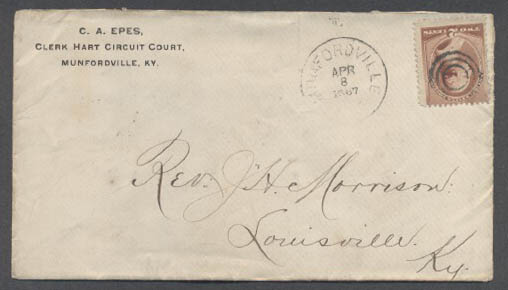 C. A. EPES,
CLERK HART CIRCUIT COURT,
MUNFORDVILLE, KY.
MUNFORDVILLE
APR
8
Rev. J. H. Morrison.
Louisville.
Ky.